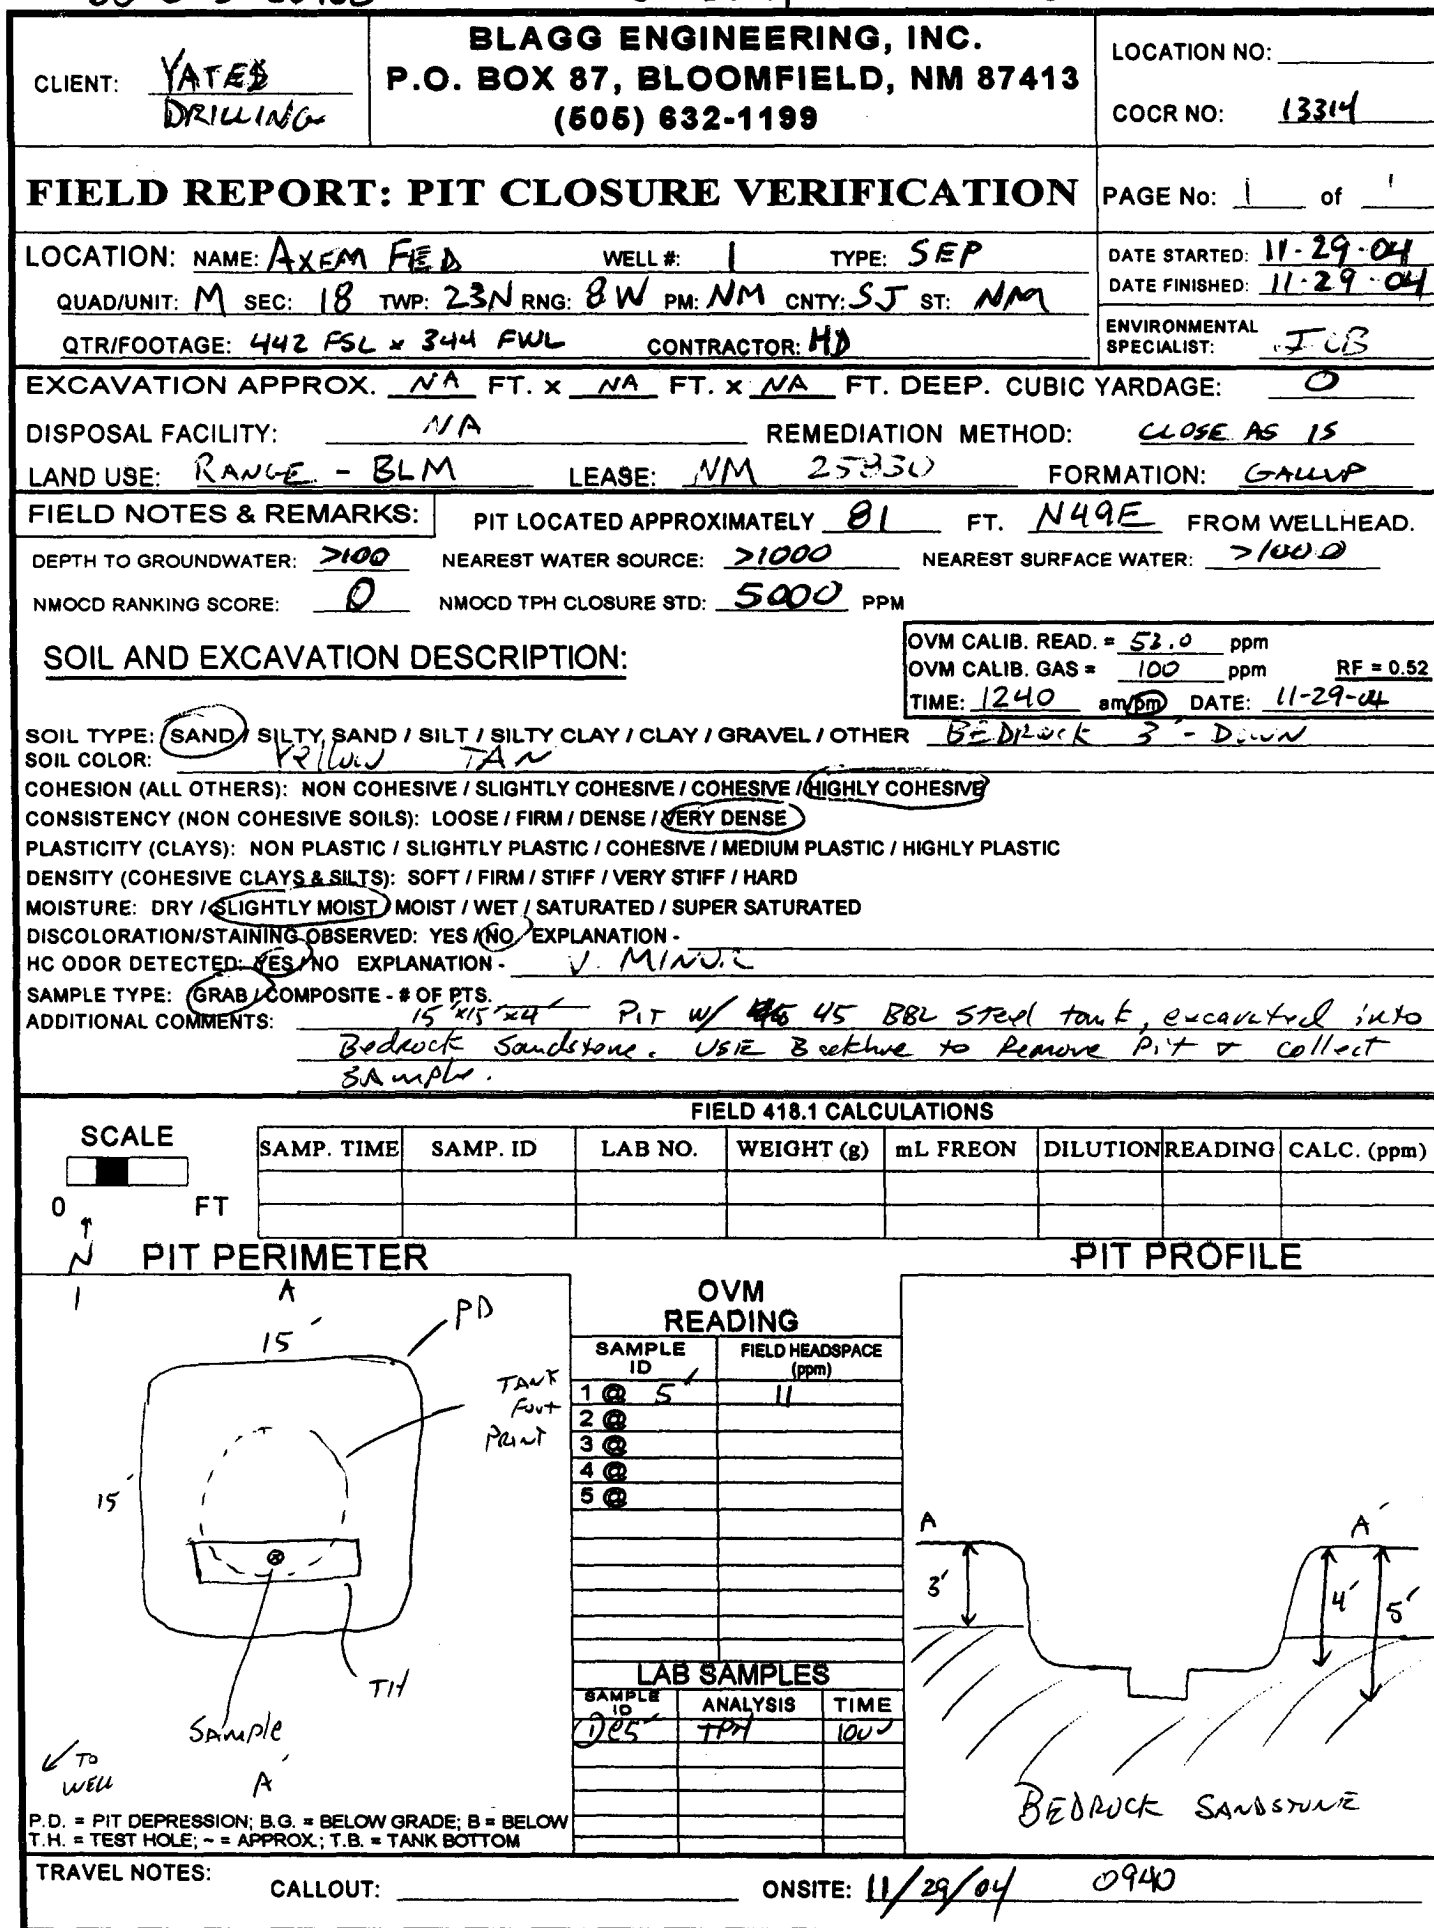 BLAGG ENGINEERING, INC.
P.O. BOX 87, BLOOMFIELD, NM 87413
(505) 632-1199
CLIENT: YATES
DRILLING
LOCATION NO:
COCR NO: 13314
FIELD REPORT: PIT CLOSURE VERIFICATION
PAGE No: 1 of 1
LOCATION: NAME: AXEM FED WELL #: 1 TYPE: SEP
QUAD/UNIT: M SEC: 18 TWP: 23N RNG: 8W PM: NM CNTY: SJ ST: NM
QTR/FOOTAGE: 442 FSL x 344 FWL CONTRACTOR: HD
DATE STARTED: 11-29-04
DATE FINISHED: 11-29-04
ENVIRONMENTAL
SPECIALIST:
EXCAVATION APPROX. NA FT. x NA FT. x NA FT. DEEP. CUBIC YARDAGE: 0
DISPOSAL FACILITY: NA REMEDIATION METHOD: CLOSE AS IS
LAND USE: RANGE - BLM LEASE: NM 25830 FORMATION: GALLUP
FIELD NOTES & REMARKS: PIT LOCATED APPROXIMATELY 81 FT. N49E FROM WELLHEAD.
DEPTH TO GROUNDWATER: >100 NEAREST WATER SOURCE: >1000 NEAREST SURFACE WATER: >1000
NMOCD RANKING SCORE: 0 NMOCD TPH CLOSURE STD: 5000 PPM
SOIL AND EXCAVATION DESCRIPTION:
OVM CALIB. READ. = 53.0 ppm
OVM CALIB. GAS = 100 ppm RF = 0.52
TIME: 1240 am/pm DATE: 11-29-04
SOIL TYPE: SAND / SILTY SAND / SILT / SILTY CLAY / CLAY / GRAVEL / OTHER BEDROCK 3' - DOWN
SOIL COLOR: YELLOW TAN
COHESION (ALL OTHERS): NON COHESIVE / SLIGHTLY COHESIVE / COHESIVE / HIGHLY COHESIVE
CONSISTENCY (NON COHESIVE SOILS): LOOSE / FIRM / DENSE / VERY DENSE
PLASTICITY (CLAYS): NON PLASTIC / SLIGHTLY PLASTIC / COHESIVE / MEDIUM PLASTIC / HIGHLY PLASTIC
DENSITY (COHESIVE CLAYS & SILTS): SOFT / FIRM / STIFF / VERY STIFF / HARD
MOISTURE: DRY / SLIGHTLY MOIST / MOIST / WET / SATURATED / SUPER SATURATED
DISCOLORATION/STAINING OBSERVED: YES / NO EXPLANATION -
HC ODOR DETECTED: YES / NO EXPLANATION - V. MINOR
SAMPLE TYPE: GRAB / COMPOSITE - # OF PTS.
ADDITIONAL COMMENTS: 15'x15'x4' PIT W/ 45 BBL Steel tank, excavated into
Bedrock Sandstone. USE Backhoe to Remove Pit & collect
SAmple.
FIELD 418.1 CALCULATIONS
SCALE
0 FT
SAMP. TIME SAMP. ID LAB NO. WEIGHT (g) mL FREON DILUTION READING CALC. (ppm)
N
PIT PERIMETER
A
15'
PD
TANK
Foot
PRINT
15'
TH
Sample
TO
WELL
A'
P.D. = PIT DEPRESSION; B.G. = BELOW GRADE; B = BELOW
T.H. = TEST HOLE; ~ = APPROX.; T.B. = TANK BOTTOM
OVM
READING
SAMPLE ID FIELD HEADSPACE (ppm)
1 @ 5' 11
2 @
3 @
4 @
5 @
LAB SAMPLES
SAMPLE ID ANALYSIS TIME
1@5' TPH 1000
PIT PROFILE
A A'
3' 4' 5'
BEDROCK SANDSTONE
TRAVEL NOTES: CALLOUT: ONSITE: 11/29/04 0940